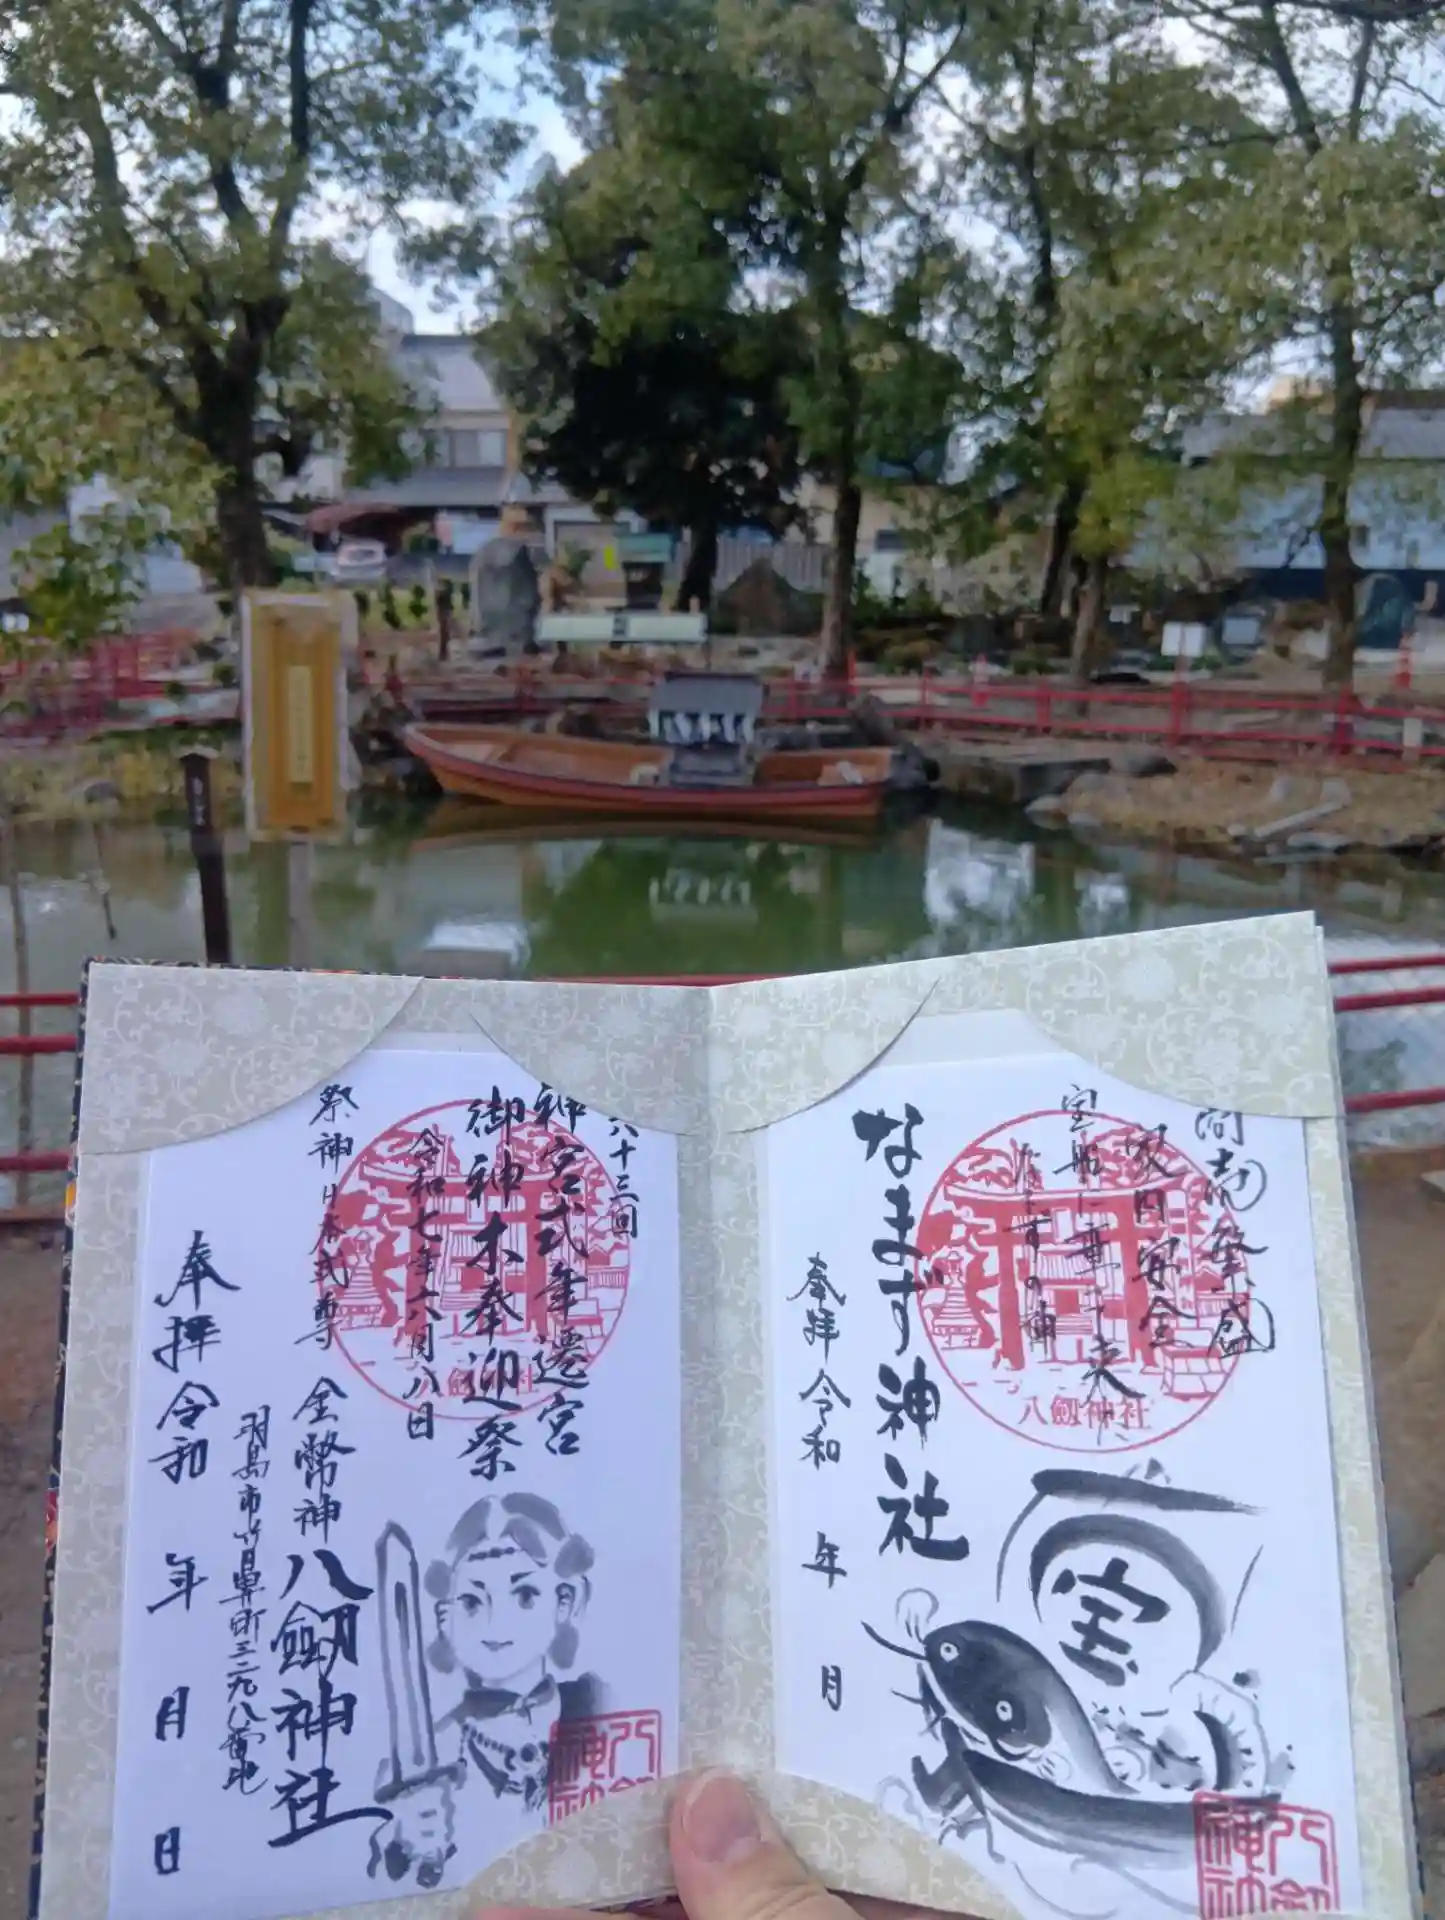 商売繁盛
家内安全
宝船に乗って来た
なまずの神
なまず神社
奉拝 令和 年 月
八劔神社
宝
六十三回
神宮式年遷宮
御神木奉迎祭
令和七年六月八日
祭神日本武尊
金幣神
八劔神社
羽島市竹鼻町三二九八番地
奉拝 令和 年 月 日